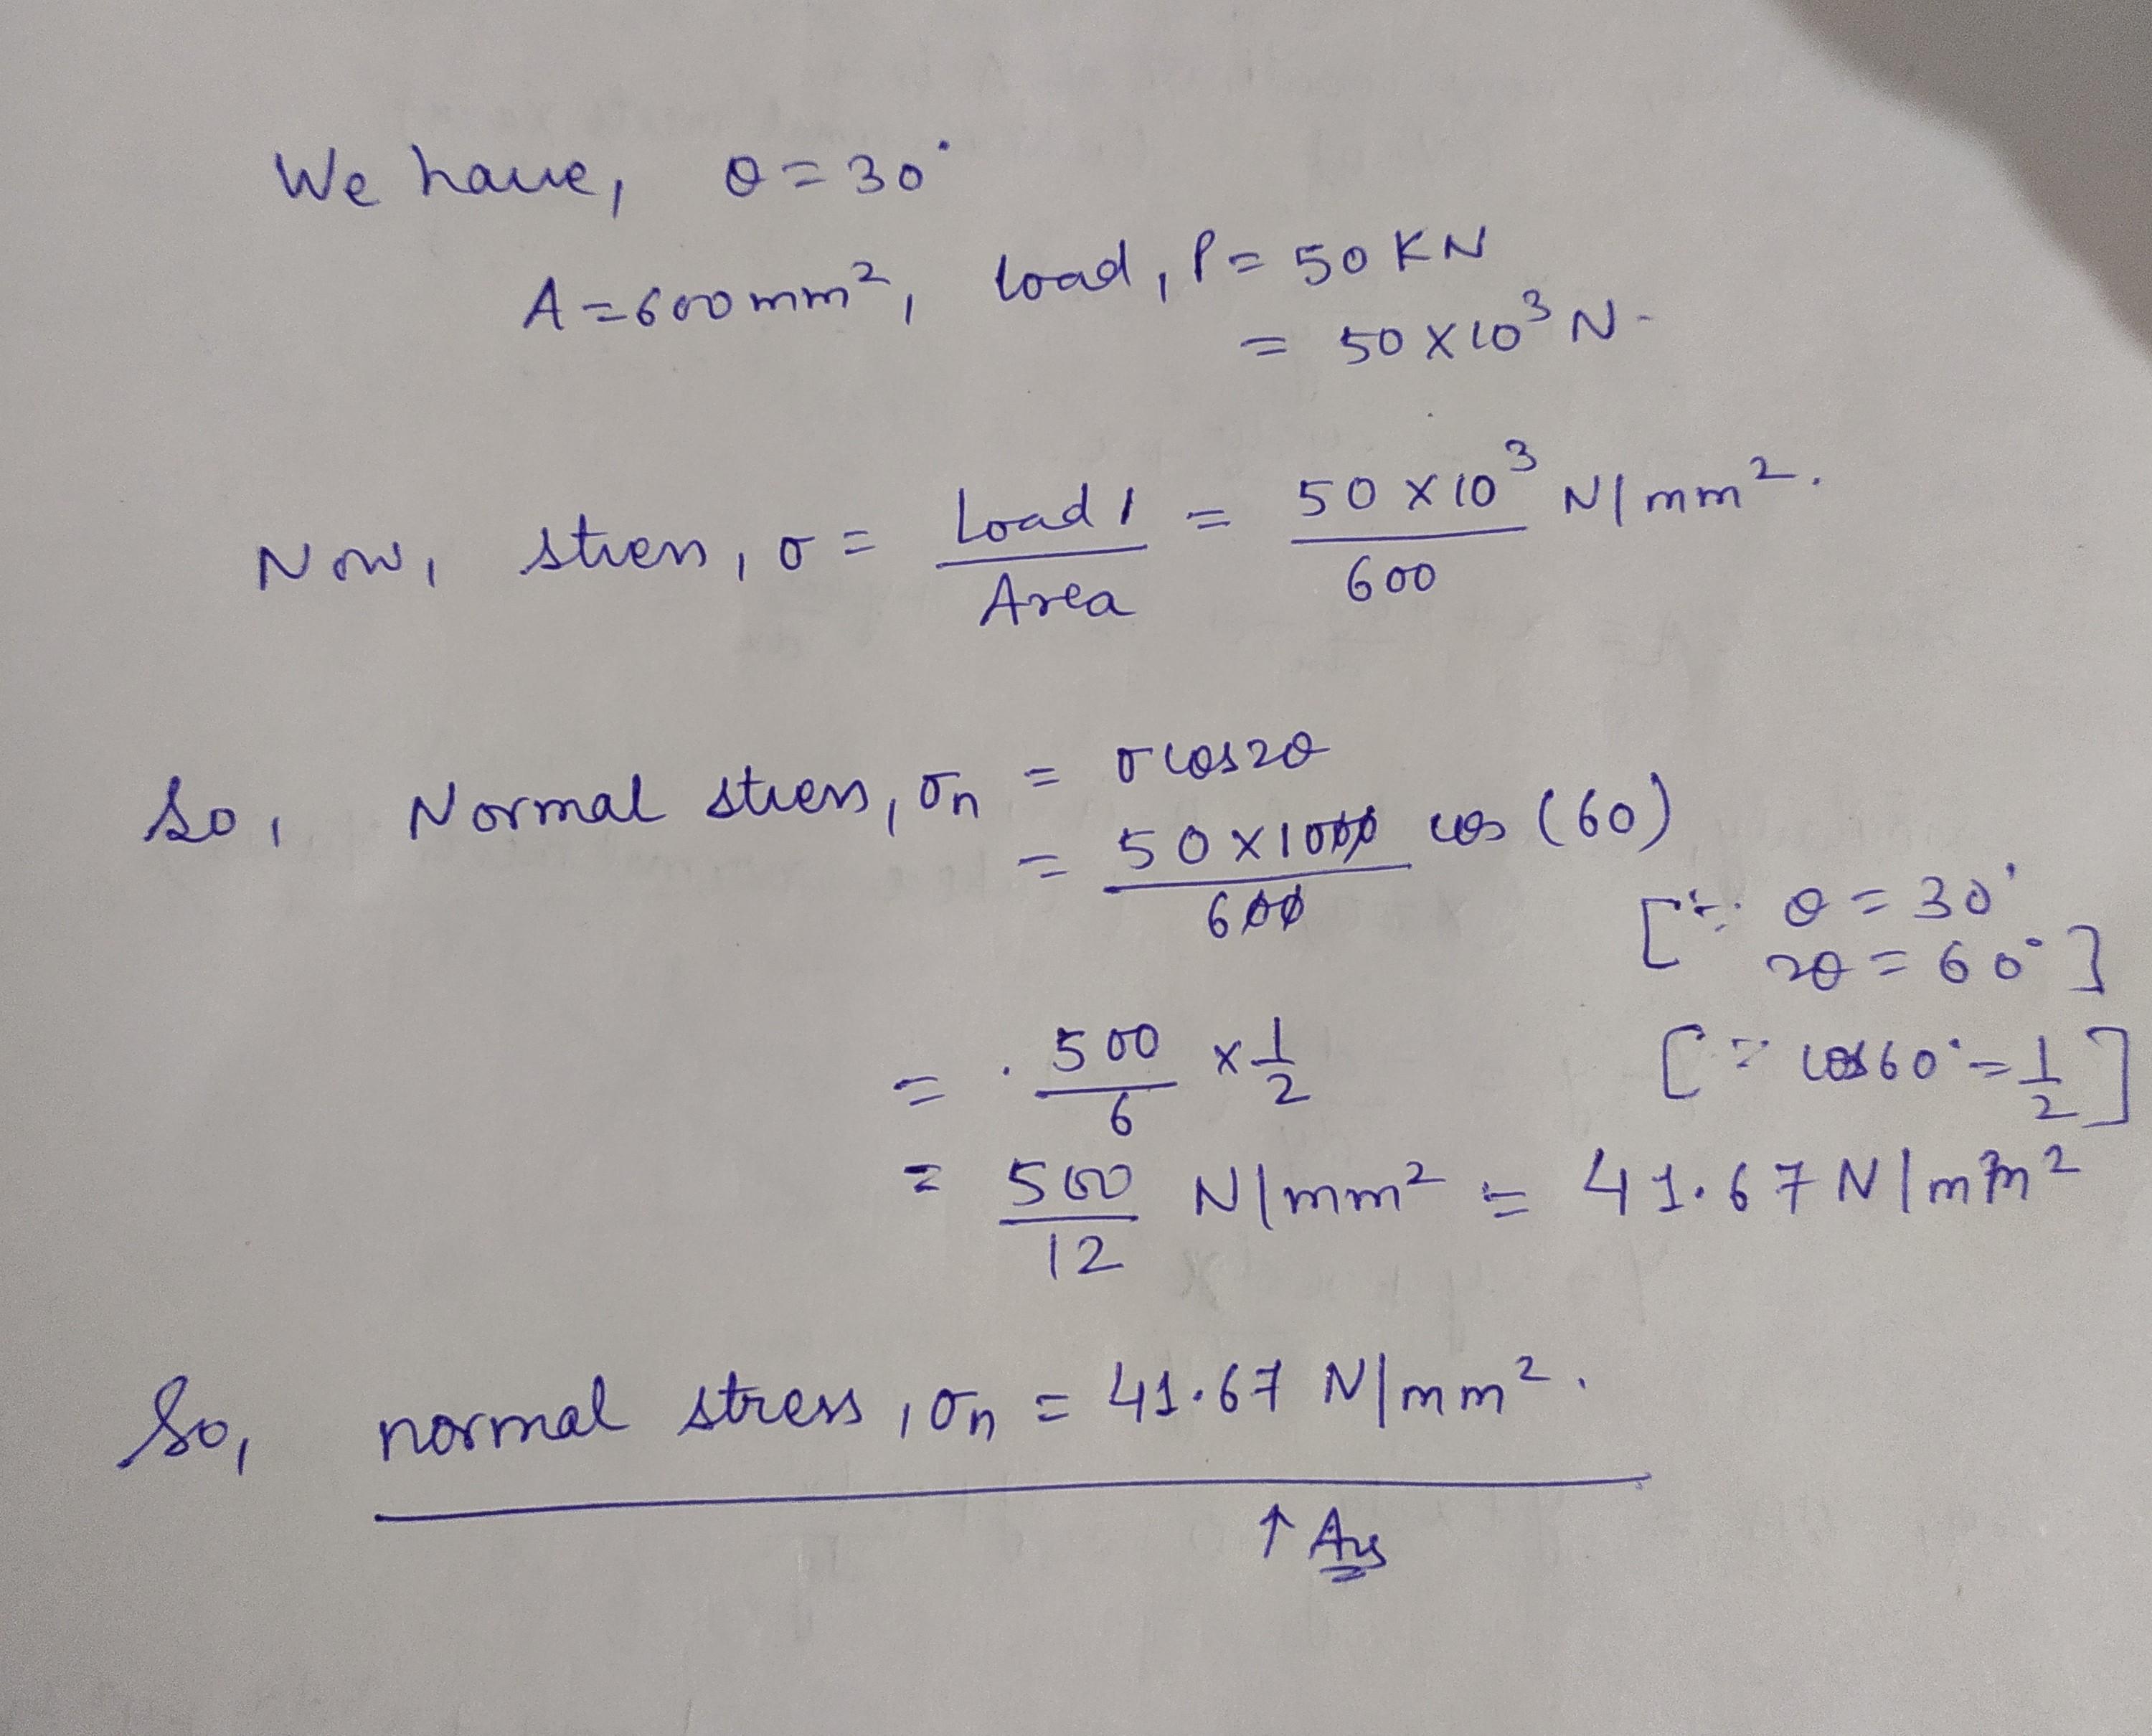 We have, θ = 30°
A = 600 mm², load, P = 50 KN
= 50 × 10³ N.
Now, stress, σ = Load / Area = 50 × 10³ / 600 N/mm².
So, Normal stress, σn = σ cos2θ
= 50 × 1000 / 600 cos (60)
[∵ θ = 30°
2θ = 60°]
= 500 / 6 × 1/2 [∵ cos60° = 1/2]
= 500 / 12 N/mm² = 41.67 N/mm²
So, normal stress, σn = 41.67 N/mm².
↑ Ans